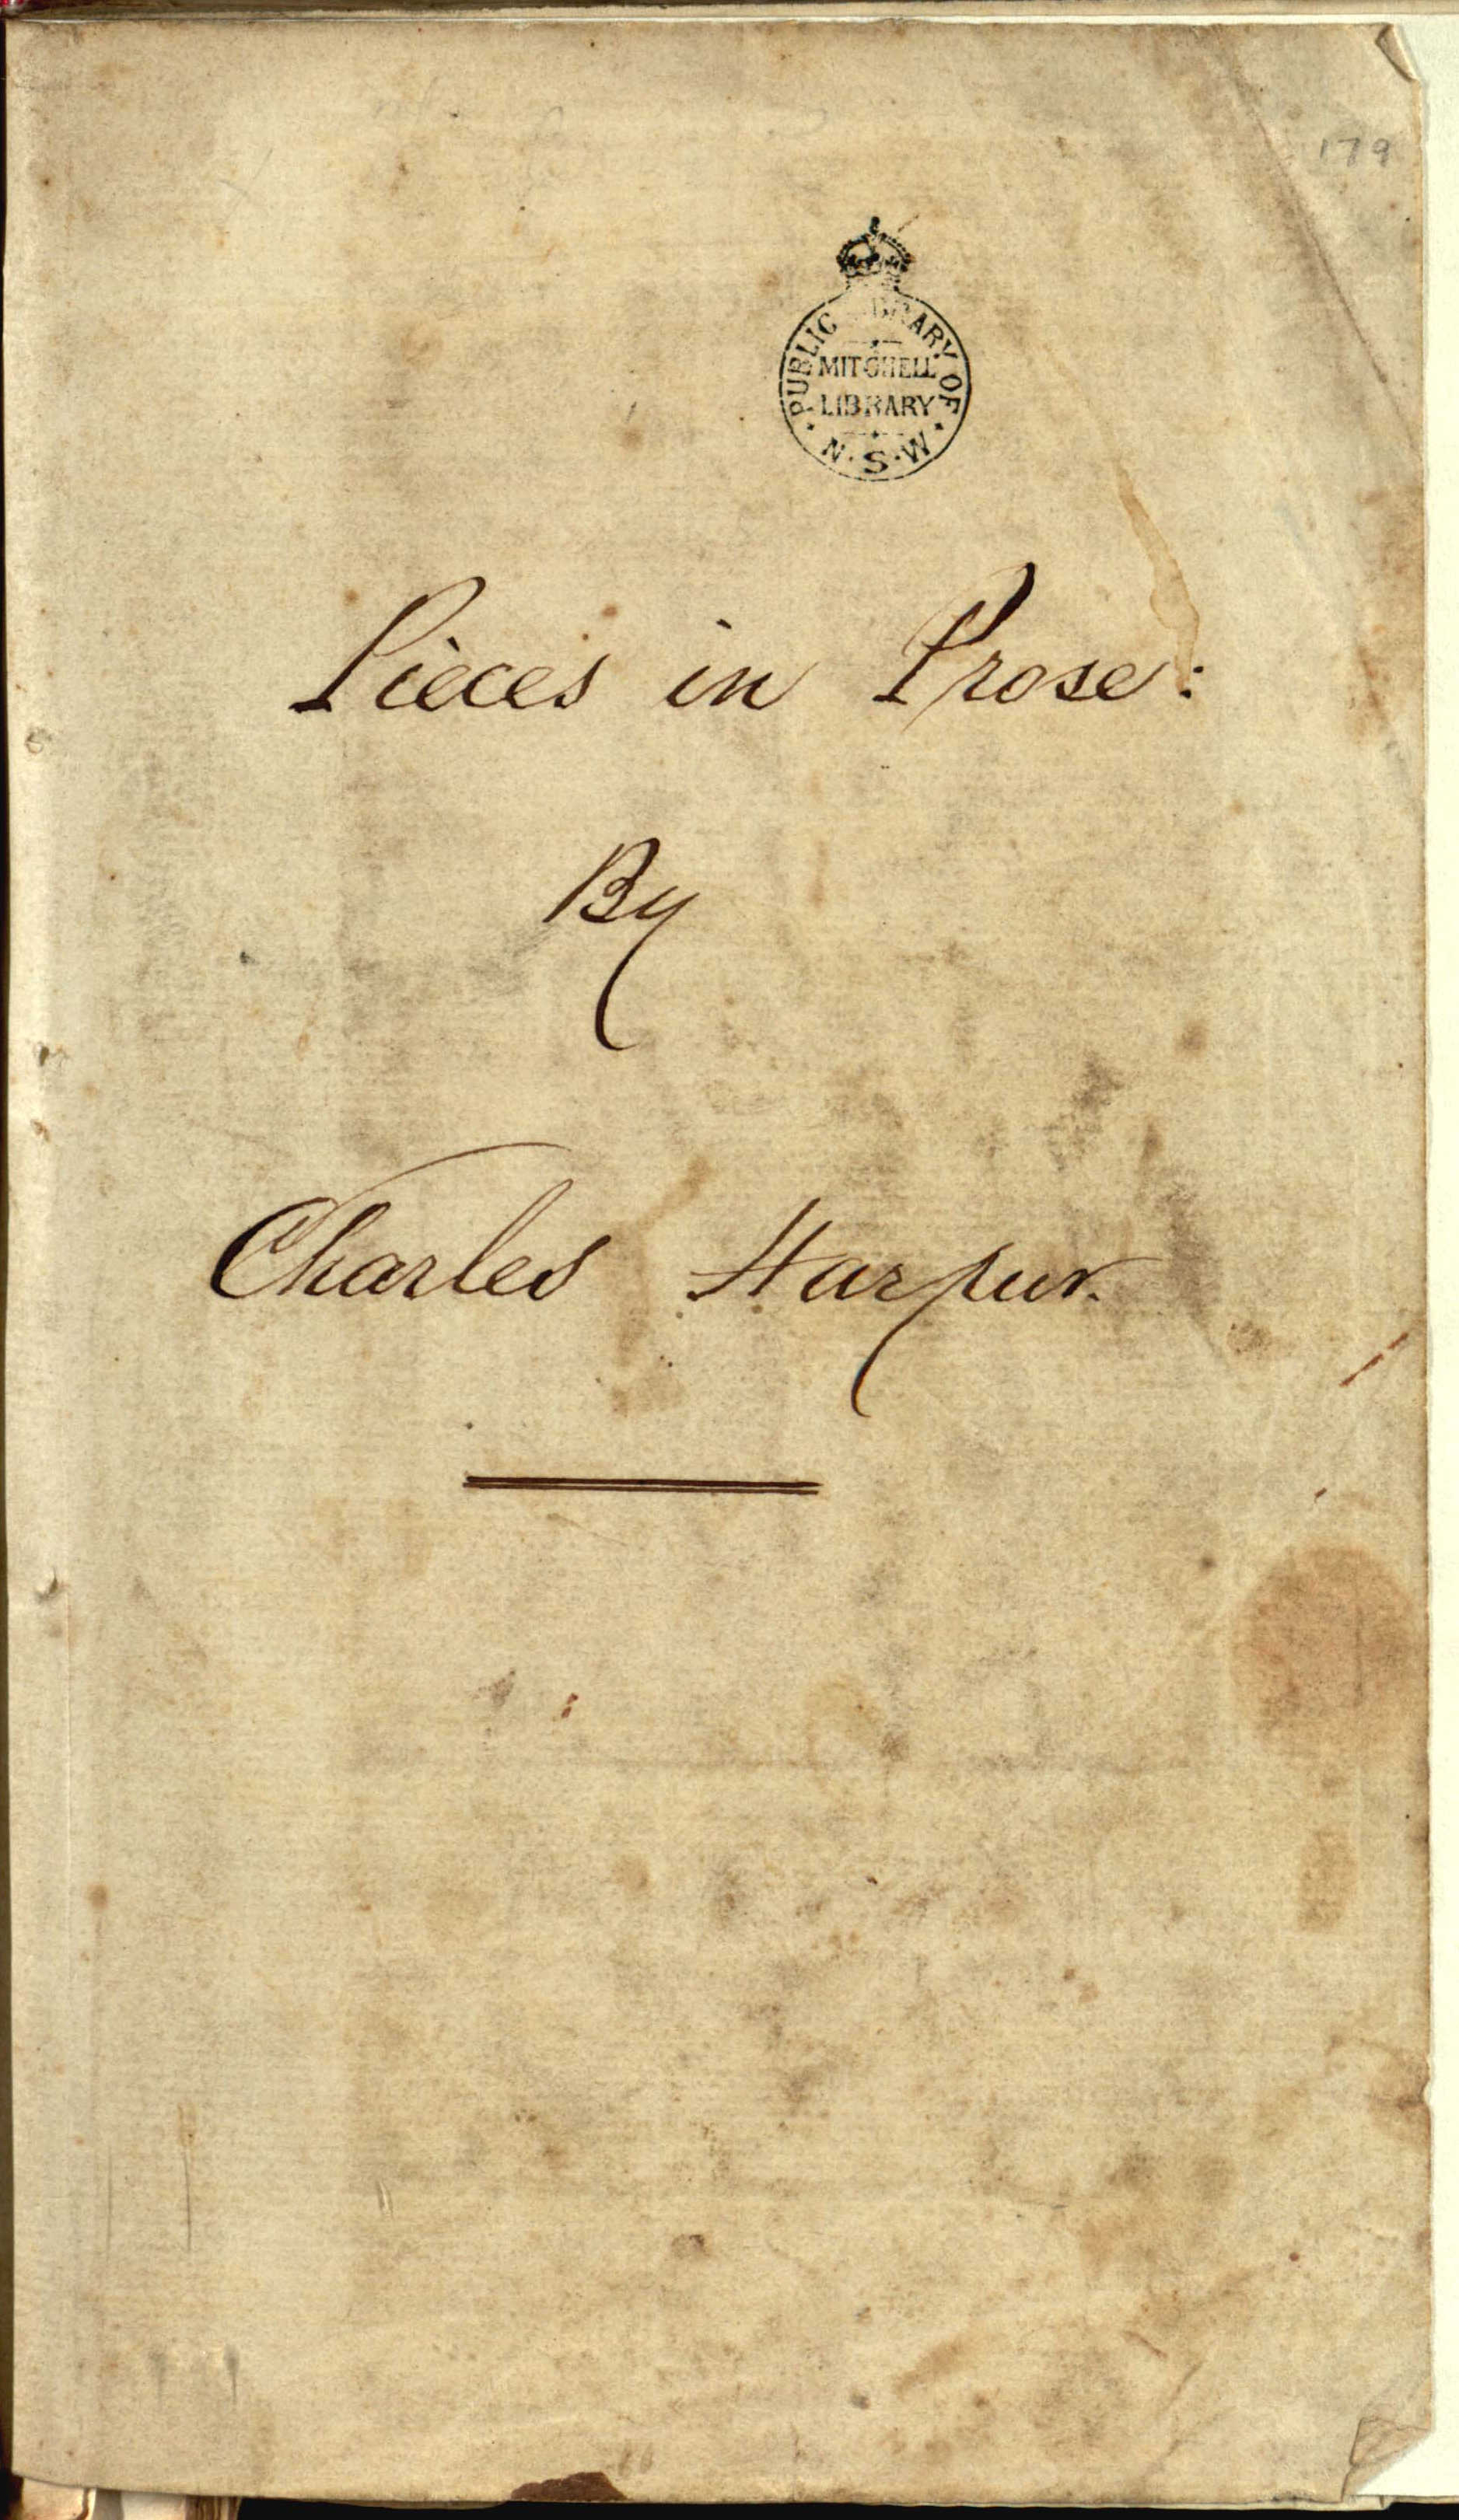 179
PUBLIC LIBRARY OF N.S.W
MITCHELL
LIBRARY
Pieces in Prose:
By
Charles Harpur.